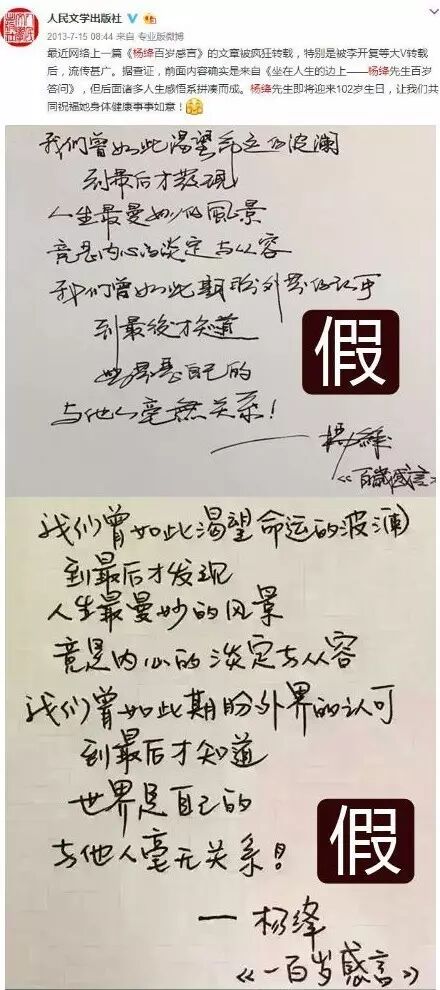 人民文学出版社
2013-7-15 08:44 来自 专业版微博
最近网络上一篇《杨绛百岁感言》的文章被疯狂转载，特别是被李开复等大V转载
后，流传甚广。据查证，前面内容确实是来自《坐在人生的边上——杨绛先生百岁
答问》，但后面诸多人生感悟系拼凑而成。杨绛先生即将迎来102岁生日，让我们共
同祝福她身体健康事事如意！
我们曾如此渴望命运的波澜
到最后才发现
人生最曼妙的風景
竟是内心的淡定与从容
我们曾如此期盼外界的认可
到最後才知道
世界是自己的
与他人毫无关系！
——杨绛
《百歲感言》
假
我们曾如此渴望命运的波澜
到最后才发现
人生最曼妙的风景
竟是内心的淡定与从容
我们曾如此期盼外界的认可
到最后才知道
世界是自己的
与他人毫无关系！
假
—杨绛
《一百岁感言》